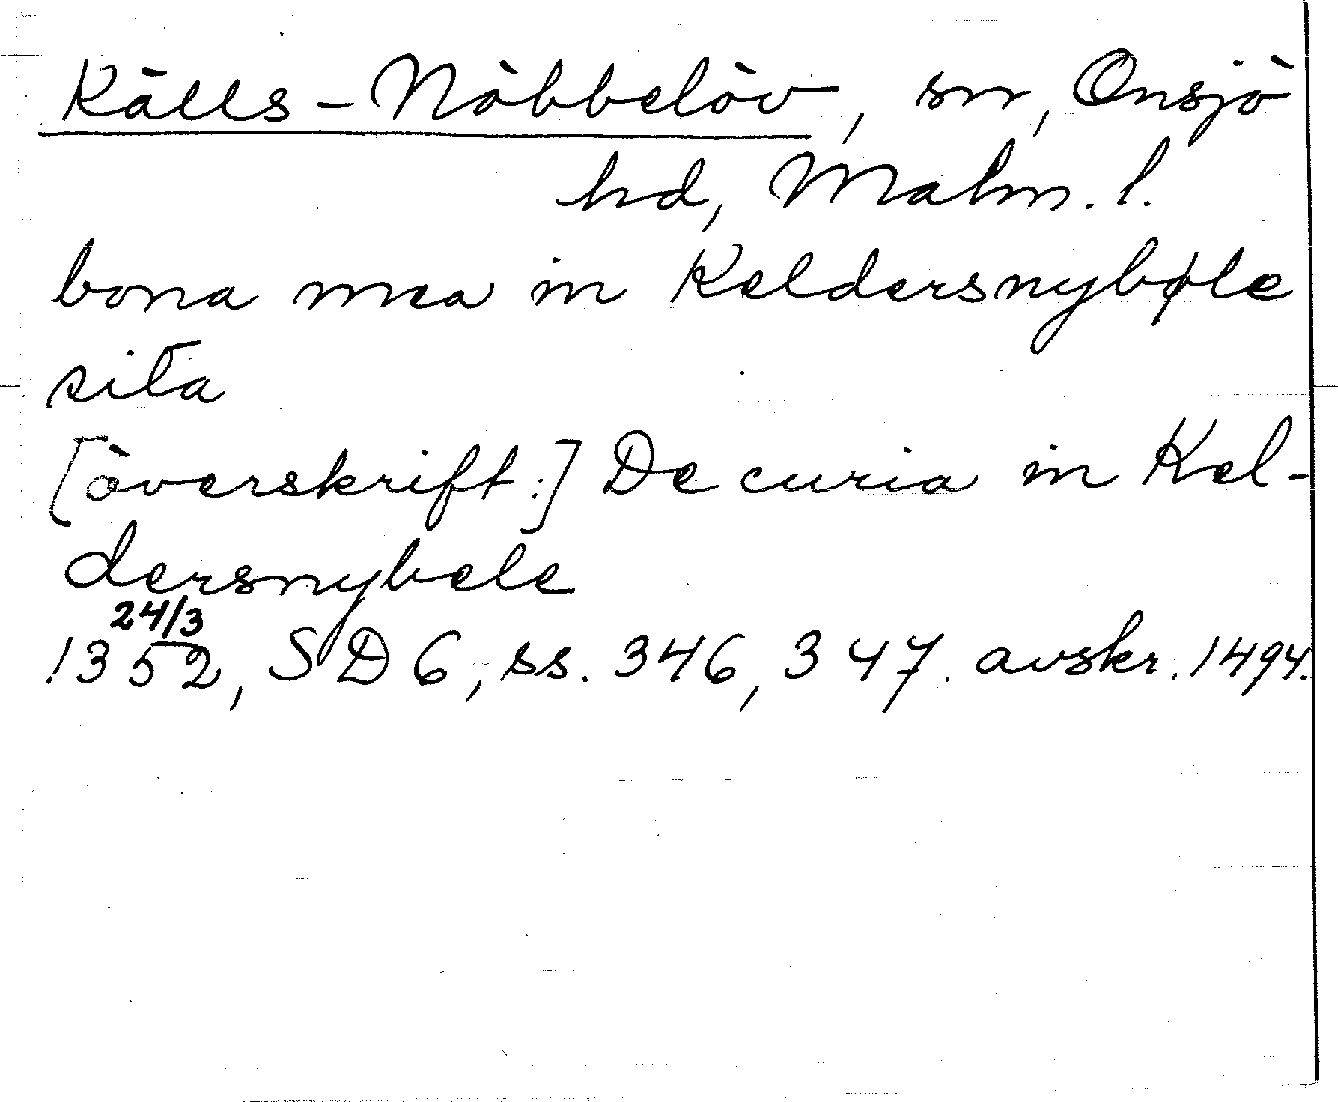 Källs-Nöbbelöv, sn, Onsjö
hd, Malm. l.
bona mea in Keldersnybøle
sita
[överskrift:] De curia in Kel-
dersnybele
24/3
1352, SD 6, ss. 346, 347. avskr. 1494.